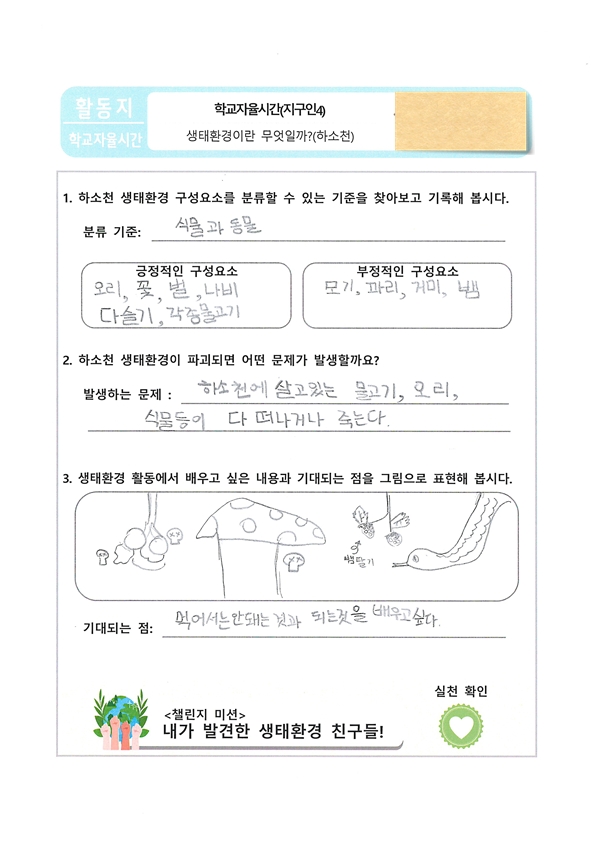 활동지
학교자율시간
학교자율시간(지구인4)
생태환경이란 무엇일까?(하소천)
1. 하소천 생태환경 구성요소를 분류할 수 있는 기준을 찾아보고 기록해 봅시다.
분류 기준: 식물과 동물
긍정적인 구성요소
오리, 꽃, 벌, 나비
다슬기, 각종물고기
부정적인 구성요소
모기, 파리, 거미, 뱀
2. 하소천 생태환경이 파괴되면 어떤 문제가 발생할까요?
발생하는 문제 : 하소천에 살고있는 물고기, 오리,
식물등이 다 떠나거나 죽는다.
3. 생태환경 활동에서 배우고 싶은 내용과 기대되는 점을 그림으로 표현해 봅시다.
뱀딸기
기대되는 점: 먹어서는안돼는것과 되는것을 배우고싶다.
실천 확인
<챌린지 미션>
내가 발견한 생태환경 친구들!